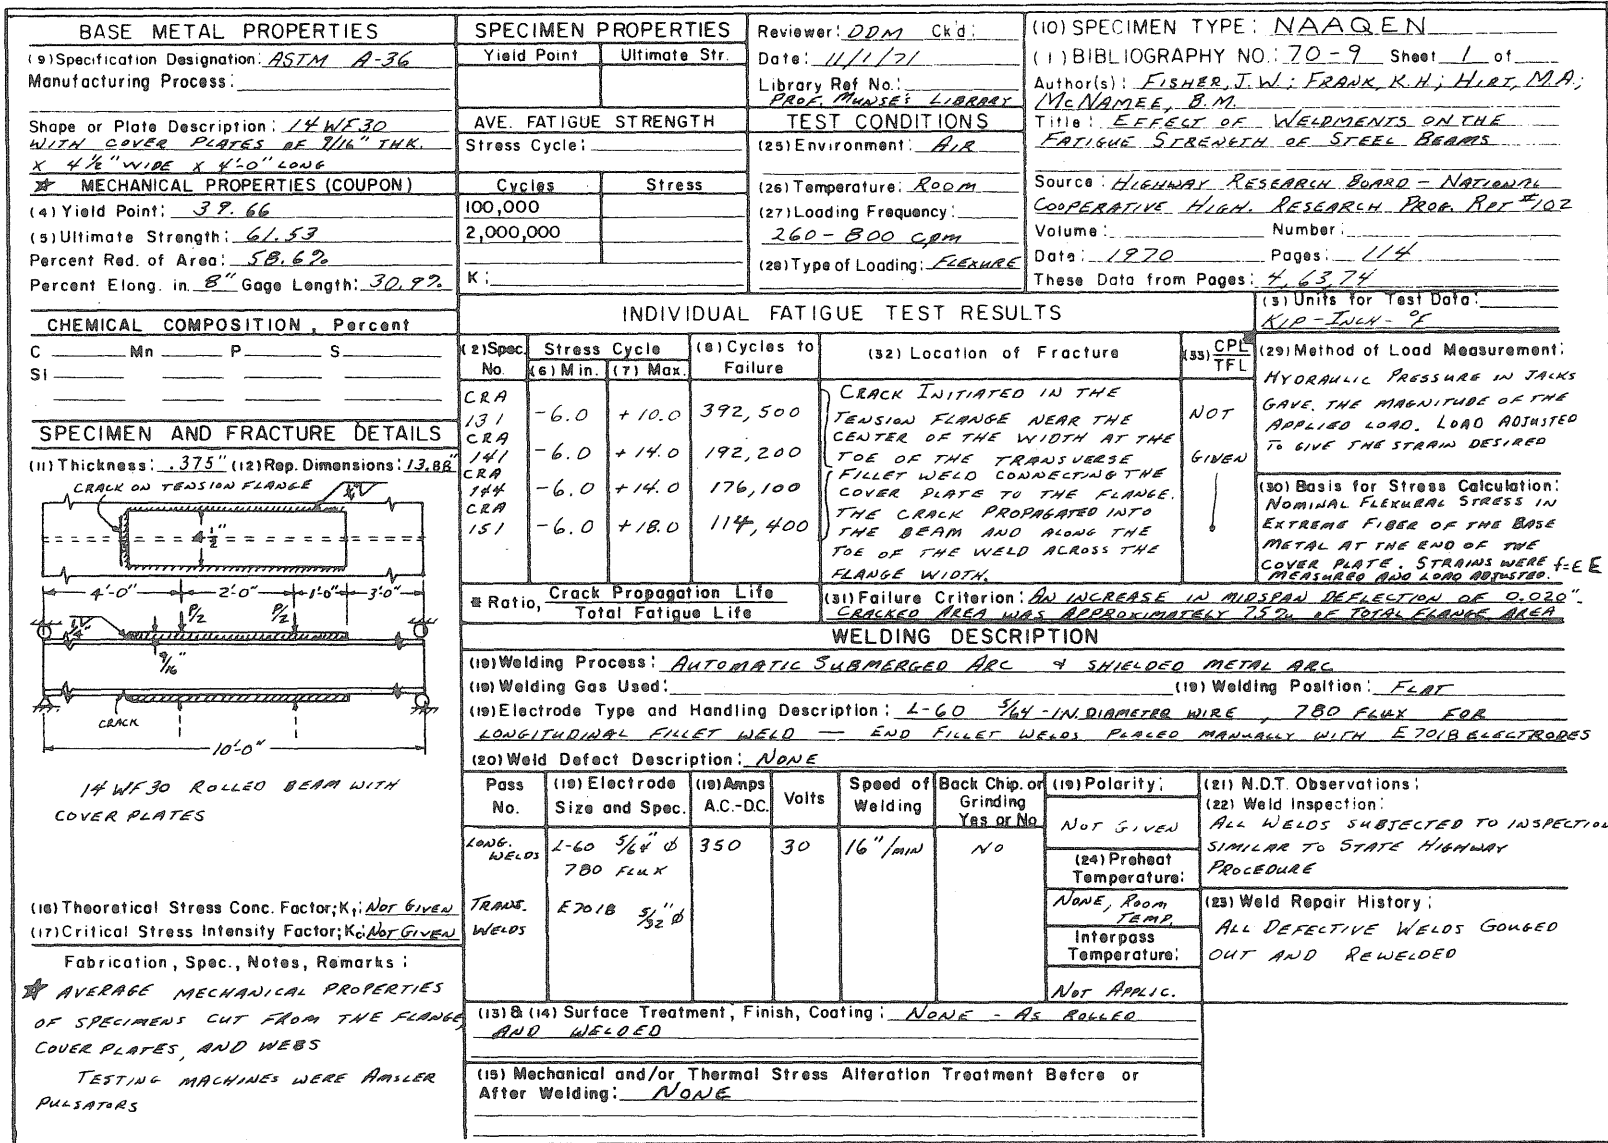 BASE METAL PROPERTIES
(9) Specification Designation: ASTM A-36
Manufacturing Process:
Shape or Plate Description: 14 WF30
WITH COVER PLATES OF 9/16" THK.
X 4 1/2" WIDE X 4'-0" LONG
★ MECHANICAL PROPERTIES (COUPON)
(4) Yield Point: 39.66
(5) Ultimate Strength: 61.53
Percent Red. of Area: 58.6%
Percent Elong. in 8" Gage Length: 30.9%
CHEMICAL COMPOSITION, Percent
C Mn P S
Si
SPECIMEN AND FRACTURE DETAILS
(11) Thickness: .375" (12) Rep. Dimensions: 13.88"
CRACK ON TENSION FLANGE
4 1/2"
4'-0" 2'-0" 1'-0" 3'-0"
1/4" P/2 P/2
9/16"
CRACK
10'-0"
14 WF30 ROLLED BEAM WITH
COVER PLATES
(16) Theoretical Stress Conc. Factor; Kt: NOT GIVEN
(17) Critical Stress Intensity Factor; Kc: NOT GIVEN
Fabrication, Spec., Notes, Remarks:
★ AVERAGE MECHANICAL PROPERTIES
OF SPECIMENS CUT FROM THE FLANGE,
COVER PLATES, AND WEBS
TESTING MACHINES WERE AMSLER
PULSATORS
SPECIMEN PROPERTIES
Yield Point Ultimate Str.
AVE. FATIGUE STRENGTH
Stress Cycle:
Cycles Stress
100,000
2,000,000
K:
Reviewer: DDM Ck'd:
Date: 11/1/71
Library Ref No.:
PROF. MUNSE'S LIBRARY
TEST CONDITIONS
(25) Environment: AIR
(26) Temperature: ROOM
(27) Loading Frequency:
260-800 cpm
(28) Type of Loading: FLEXURE
(10) SPECIMEN TYPE: NAAQEN
(1) BIBLIOGRAPHY NO.: 70-9 Sheet 1 of
Author(s): FISHER, J.W.; FRANK, K.H.; HIRT, M.A.;
MCNAMEE, B.M.
Title: EFFECT OF WELDMENTS ON THE
FATIGUE STRENGTH OF STEEL BEAMS
Source: HIGHWAY RESEARCH BOARD - NATIONAL
COOPERATIVE HIGH. RESEARCH PROG. RPT #102
Volume: Number:
Date: 1970 Pages: 114
These Data from Pages: 4,63,74
INDIVIDUAL FATIGUE TEST RESULTS
(3) Units for Test Data:
KIP-INCH-°F
(2) Spec. No. Stress Cycle (6) Min. (7) Max. (8) Cycles to Failure (32) Location of Fracture (33) CPL/TFL
CRA 131 -6.0 +10.0 392,500
CRA 141 -6.0 +14.0 192,200
CRA 144 -6.0 +14.0 176,100
CRA 151 -6.0 +18.0 114,400
CRACK INITIATED IN THE
TENSION FLANGE NEAR THE
CENTER OF THE WIDTH AT THE
TOE OF THE TRANSVERSE
FILLET WELD CONNECTING THE
COVER PLATE TO THE FLANGE.
THE CRACK PROPAGATED INTO
THE BEAM AND ALONG THE
TOE OF THE WELD ACROSS THE
FLANGE WIDTH.
NOT
GIVEN
(29) Method of Load Measurement:
HYDRAULIC PRESSURE IN JACKS
GAVE THE MAGNITUDE OF THE
APPLIED LOAD. LOAD ADJUSTED
TO GIVE THE STRAIN DESIRED
(30) Basis for Stress Calculation:
NOMINAL FLEXURAL STRESS IN
EXTREME FIBER OF THE BASE
METAL AT THE END OF THE
COVER PLATE. STRAINS WERE f=εE
MEASURED AND LOAD ADJUSTED.
* Ratio, Crack Propagation Life
Total Fatigue Life
(31) Failure Criterion: AN INCREASE IN MIDSPAN DEFLECTION OF 0.020".
CRACKED AREA WAS APPROXIMATELY 75% OF TOTAL FLANGE AREA
WELDING DESCRIPTION
(19) Welding Process: AUTOMATIC SUBMERGED ARC & SHIELDED METAL ARC
(19) Welding Gas Used: (19) Welding Position: FLAT
(19) Electrode Type and Handling Description: L-60 5/64-IN. DIAMETER WIRE, 780 FLUX FOR
LONGITUDINAL FILLET WELD — END FILLET WELDS PLACED MANUALLY WITH E7018 ELECTRODES
(20) Weld Defect Description: NONE
Pass No. (19) Electrode Size and Spec. (19) Amps A.C.-D.C. Volts Speed of Welding Back Chip. or Grinding Yes or No
LONG. WELDS L-60 5/64" φ 350 30 16"/MIN NO
780 FLUX
TRANS. WELDS E7018 5/32" φ
(19) Polarity:
NOT GIVEN
(24) Preheat
Temperature:
NONE, ROOM
TEMP.
Interpass
Temperature:
NOT APPLIC.
(21) N.D.T. Observations:
(22) Weld Inspection:
ALL WELDS SUBJECTED TO INSPECTION
SIMILAR TO STATE HIGHWAY
PROCEDURE
(23) Weld Repair History:
ALL DEFECTIVE WELDS GOUGED
OUT AND REWELDED
(13) & (14) Surface Treatment, Finish, Coating: NONE - AS ROLLED
AND WELDED
(15) Mechanical and/or Thermal Stress Alteration Treatment Before or
After Welding: NONE